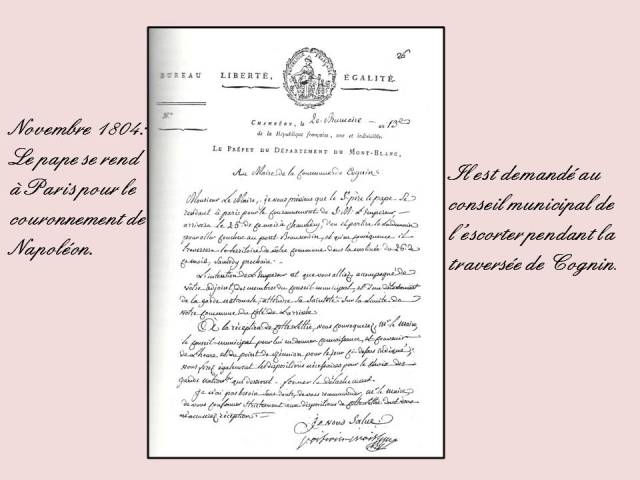 Novembre 1804:
Le pape se rend
à Paris pour le
couronnement de
Napoléon.
26
BUREAU LIBERTÉ, ÉGALITÉ.
N.°
CHAMBÉRY, le 20 Brumaire an 13
de la République française, une et indivisible.
LE PRÉFET DU DÉPARTEMENT DU MONT-BLANC,
Au Maire de la Commune de Cognin.
Monsieur le Maire, je vous préviens que le St père le pape se
rendant à paris pour le couronnement de S. M. L'Empereur,
arrivera le 25 de ce mois à Chambéry, d'où il partira le lendemain
pour aller coucher au pont Beauvoisin, et qu'en conséquence il
traversera le territoire de votre commune dans la matinée du 26 de
ce mois, Samedy prochain.
L'intention de L'Empereur est que vous alliez, accompagné de
votre adjoint, des membres du Conseil municipal, et d'un détachement
de la garde nationale, attendre sa Sainteté sur la limite de
votre Commune du côté de l'arrivée.
à la réception de cette lettre, vous convoquerez, mr le maire,
le Conseil municipal pour lui en donner connaissance, et convenir
de l'heure et du point de réunion pour le jour
vous ferez également les dispositions nécessaires pour le choix des
gardes nationaux qui devront former le détachement.
Je n'ai pas besoin sans doute de vous recommander, mr le maire
de vous conformer strictement aux dispositions de cette lettre dont vous
m'accuserez réception.
Je vous Salue.
Il est demandé au
conseil municipal de
l'escorter pendant la
traversée de Cognin.